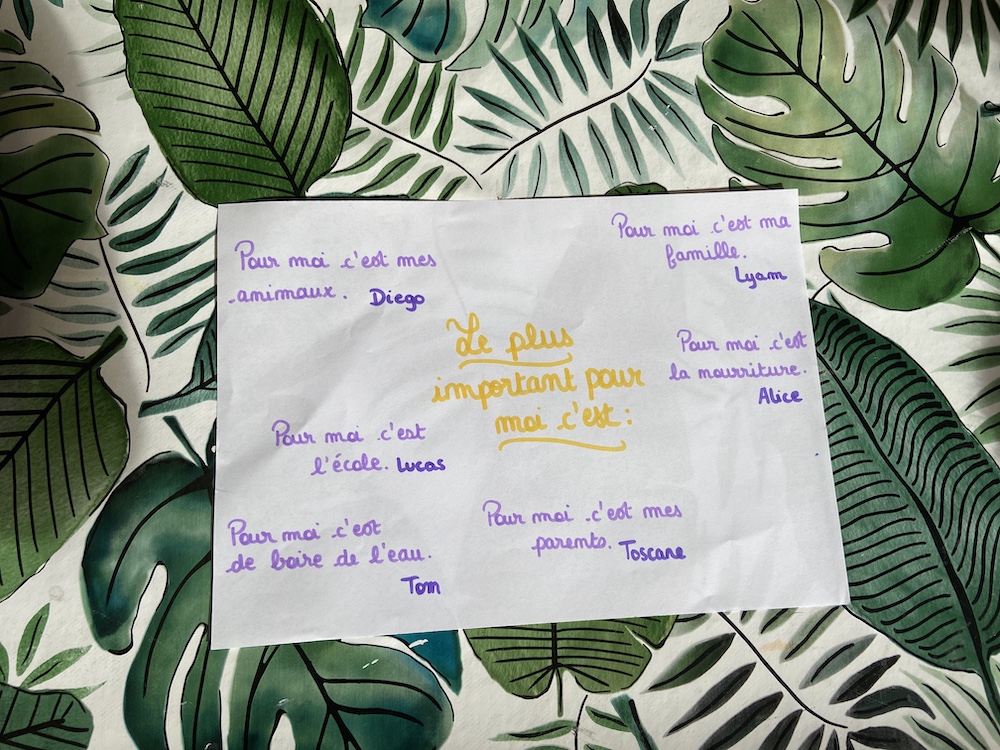 Le plus
important pour
moi c'est :
Pour moi c'est mes
animaux. Diego
Pour moi c'est ma
famille.
Lyam
Pour moi c'est
la nourriture.
Alice
Pour moi c'est
l'école. Lucas
Pour moi c'est
de boire de l'eau.
Tom
Pour moi c'est mes
parents. Toscane